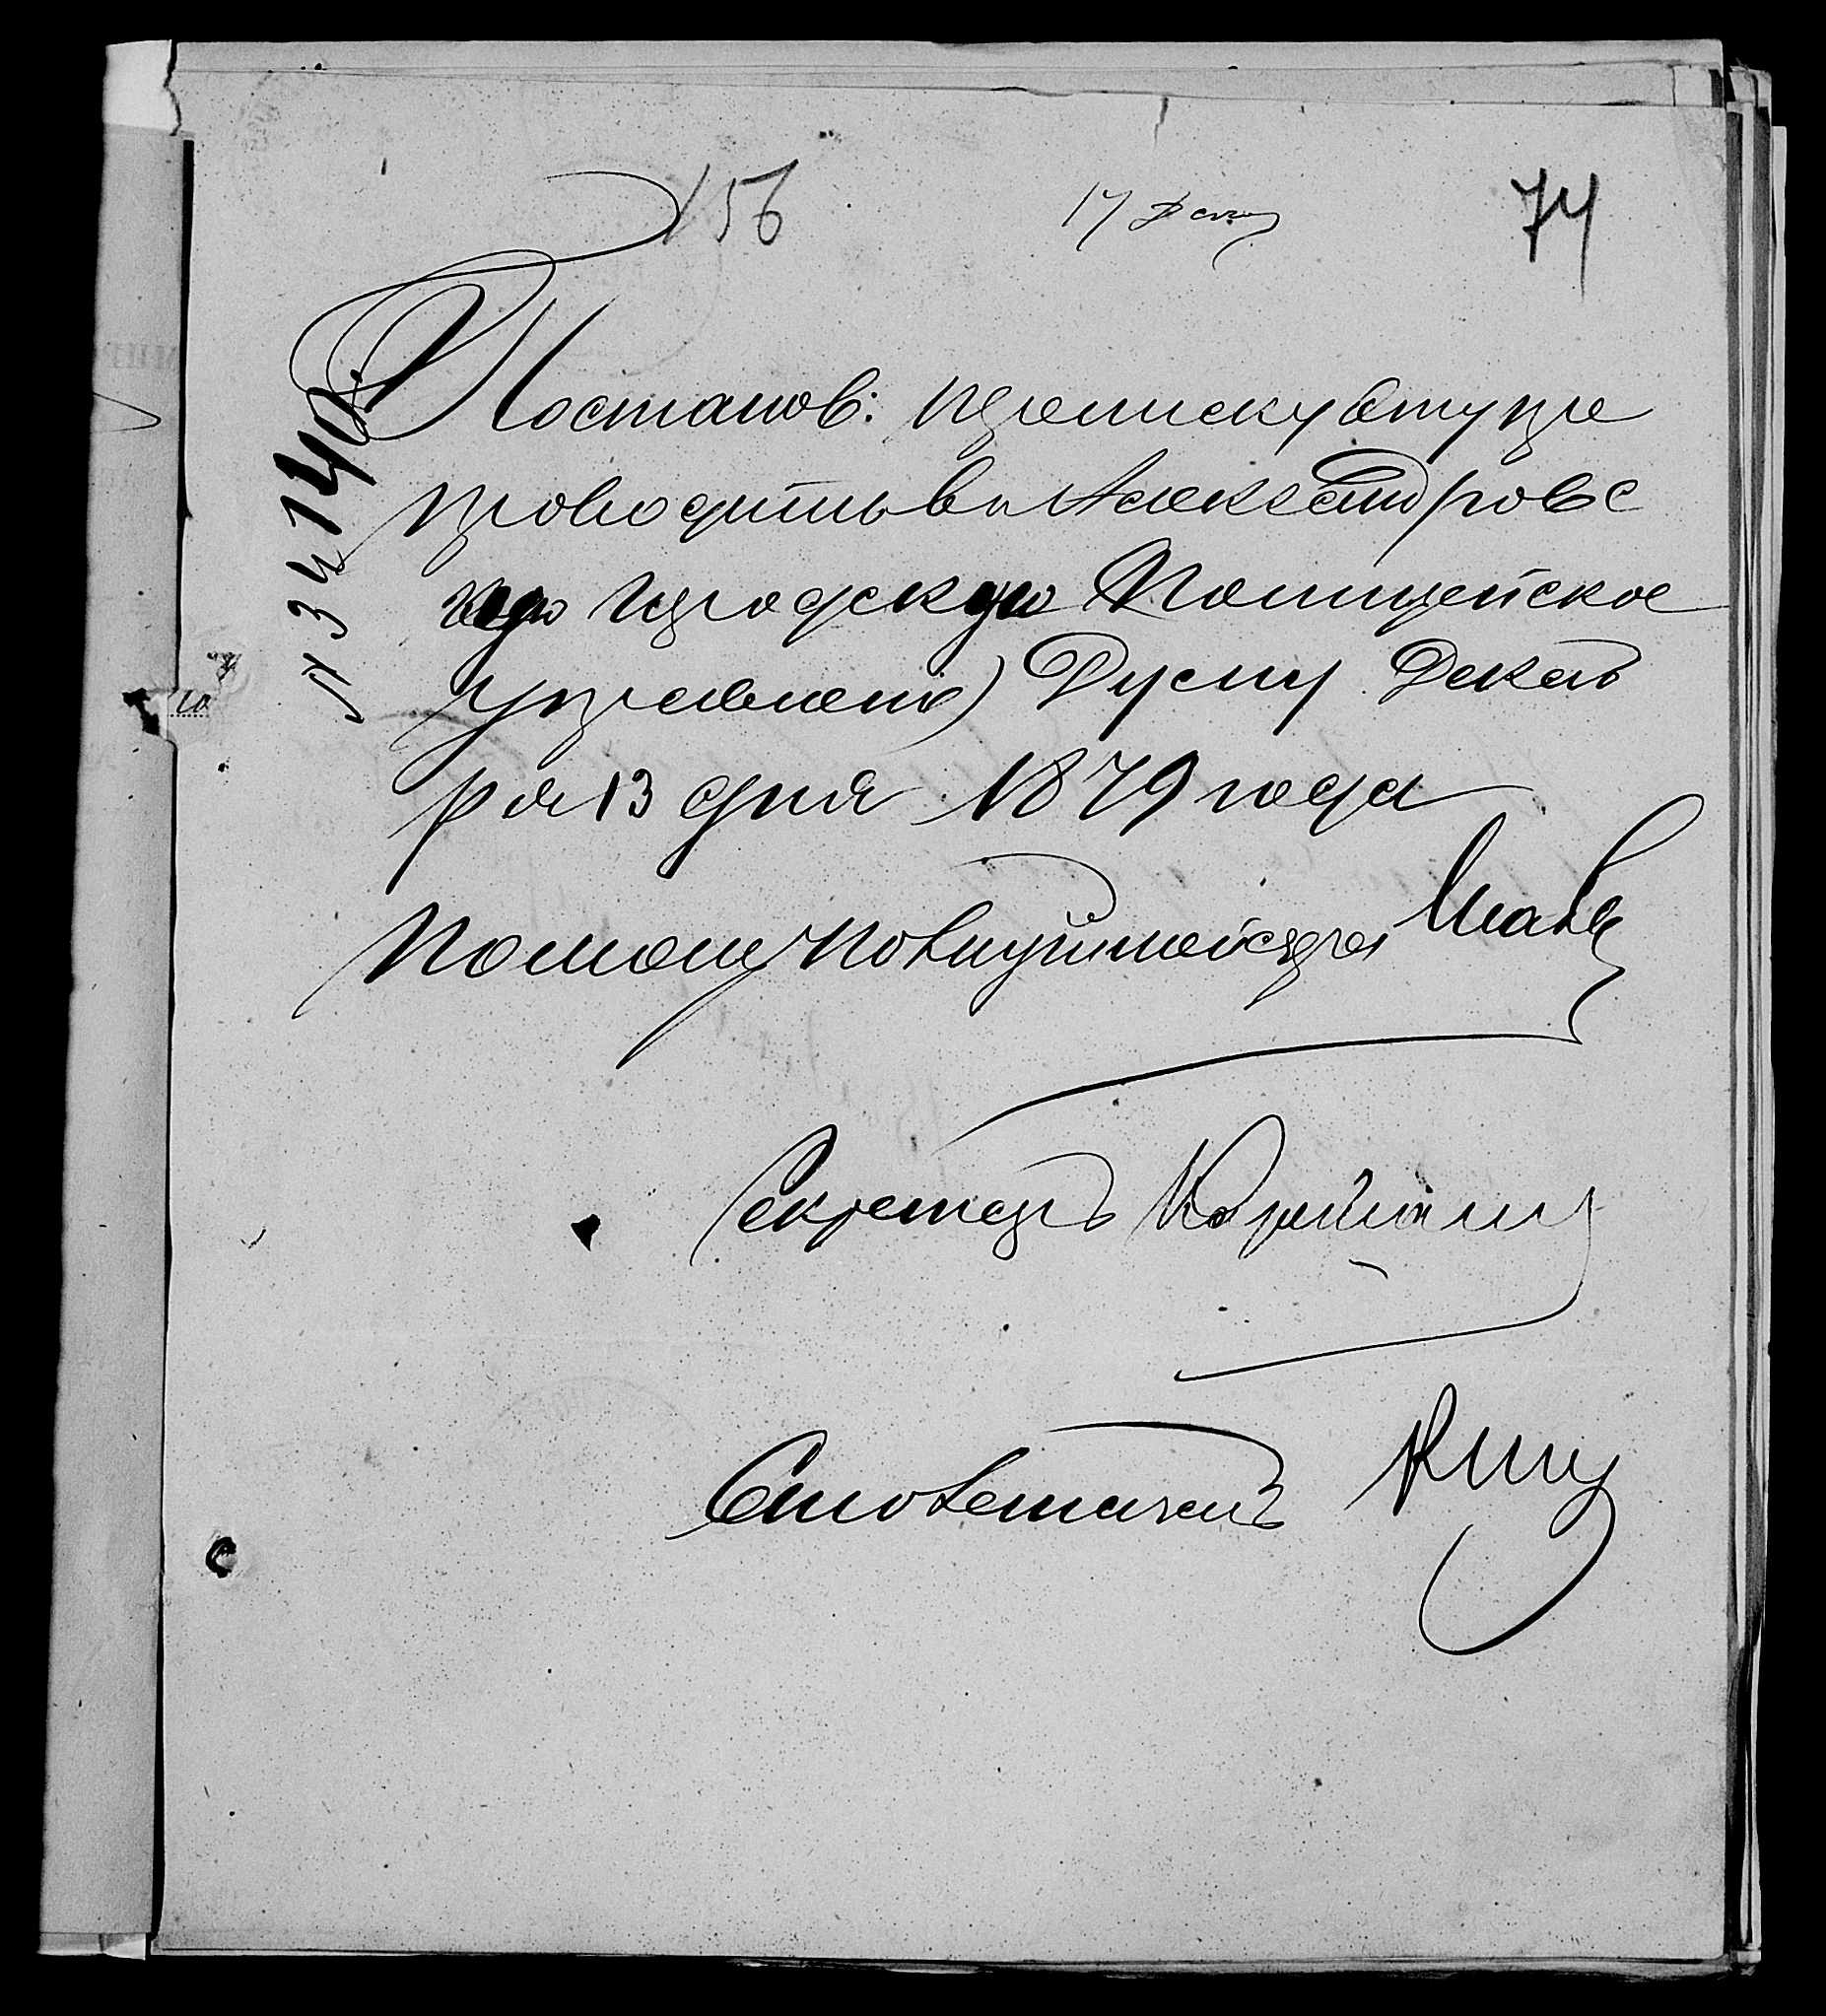 156
17 Дек
74
№ 34140.
Постанов: переписку эту пре
проводить въ Александровс
кое городское Полицейское
управленіе) Думу. Декаб
ря 13 дня 1879 года
Помощ Полицiймейстера
Секретарь
Столоначал